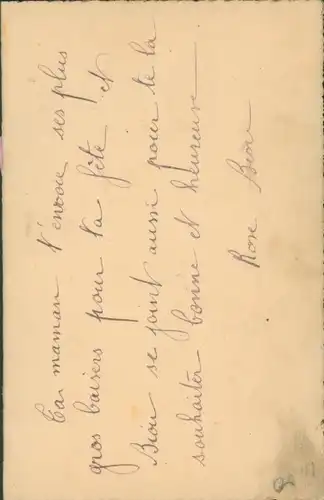 Ta maman t'envoie ses plus
gros baisers pour ta fête et
Biou se joint aussi pour te la
souhaiter bonne et heureuse
Rose Biou